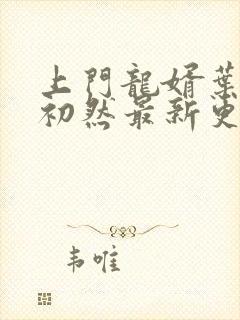 上門龍婿葉
初然最新更
韦唯